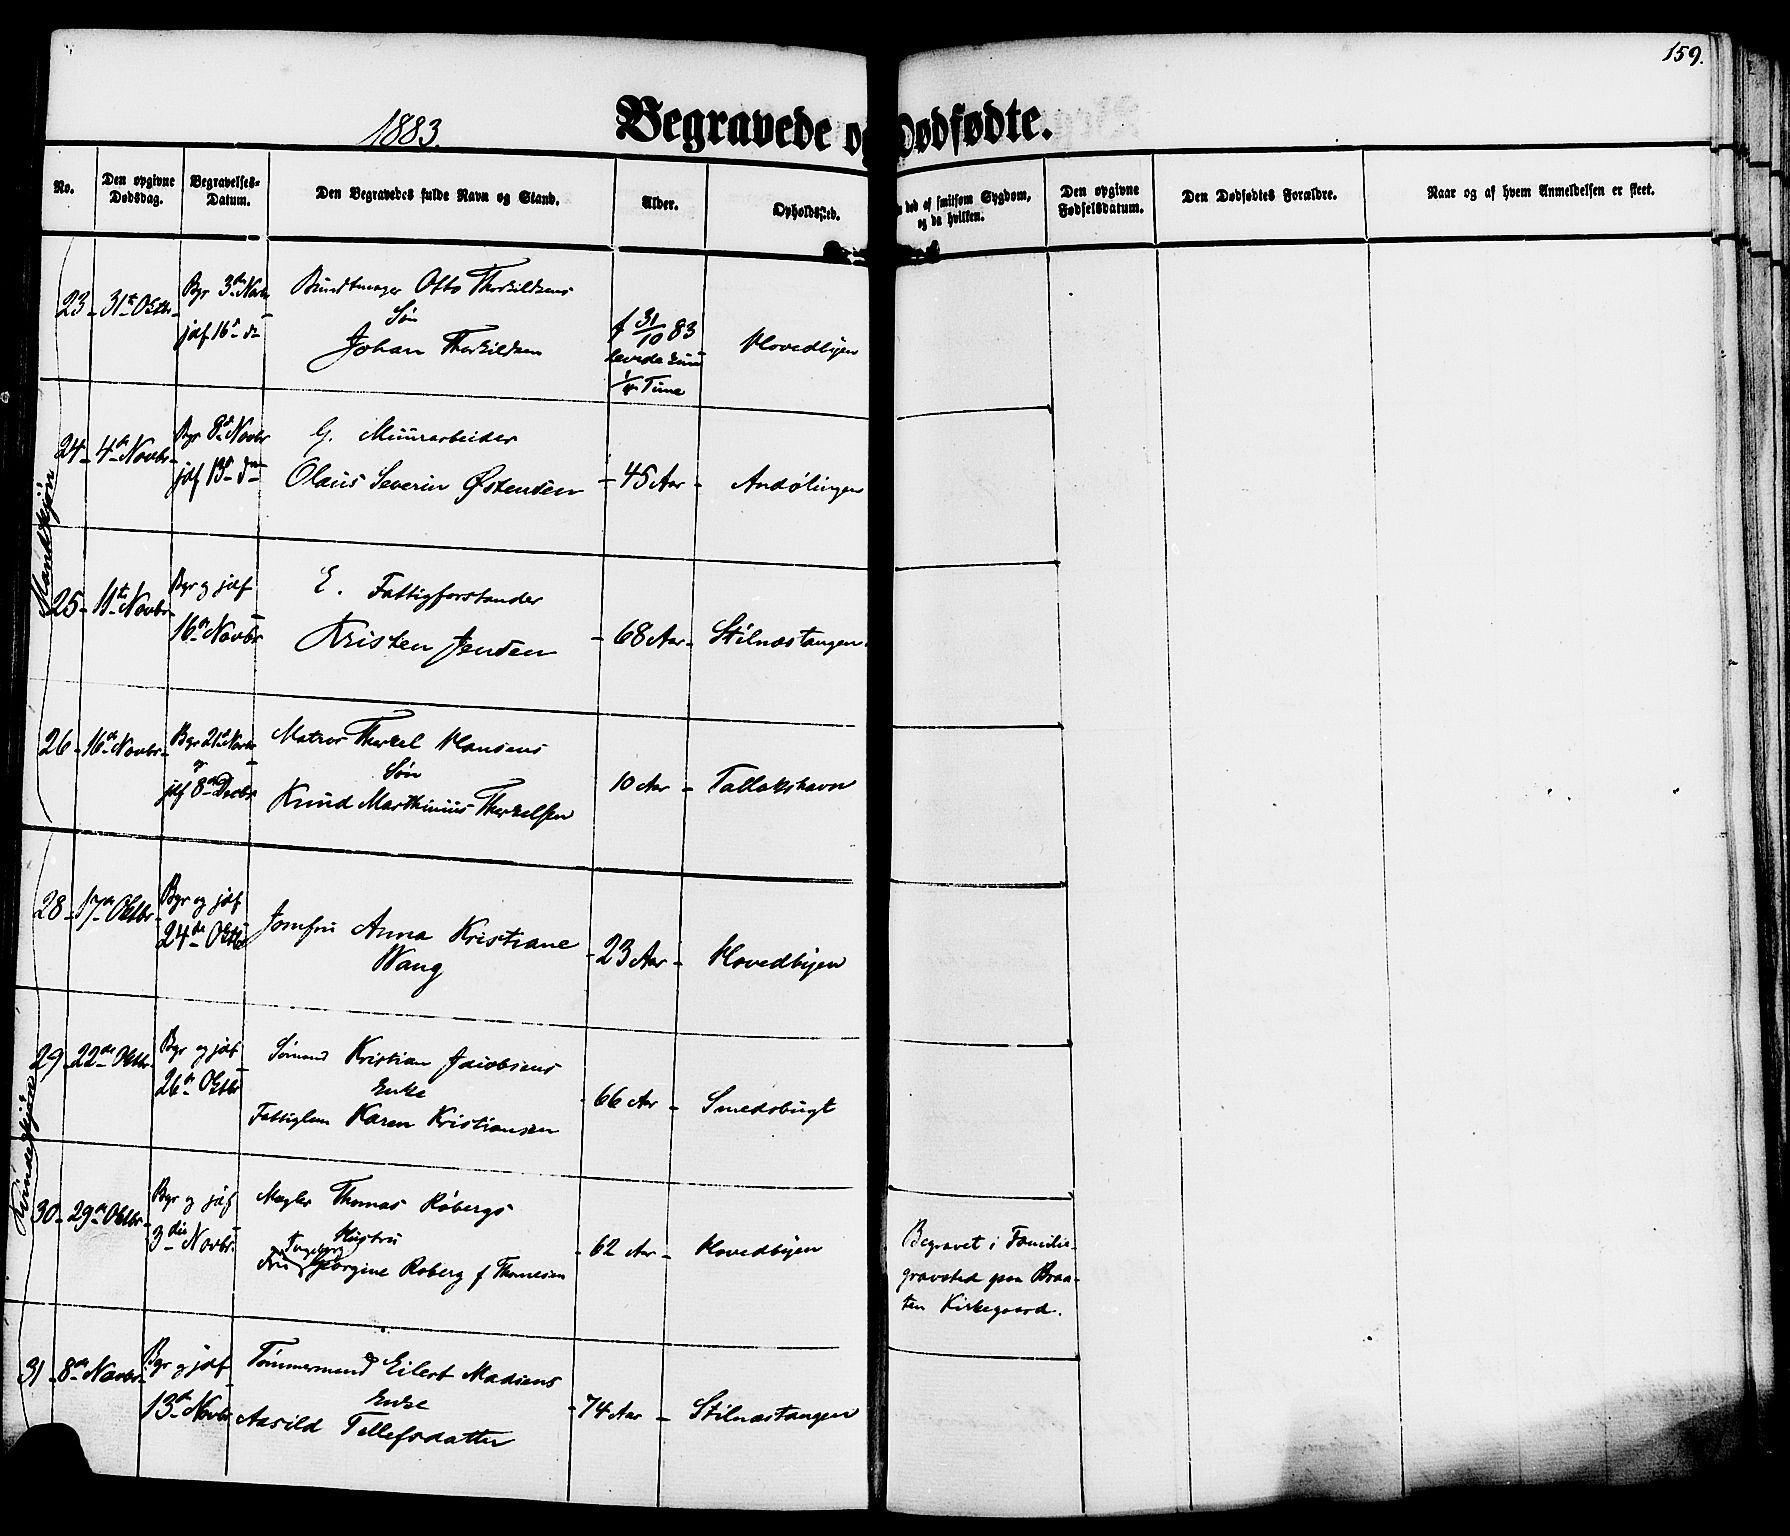 159.
1883.
Begravede og Dødfødte.
No.
Den opgivne Dødsdag.
Begravelses-Datum.
Den Begravedes fulde Navn og Stand.
Alder.
Opholdssted.
død af smitsom Sygdom, og da hvilken.
Den opgivne Fødselsdatum.
Den Dødfødtes Forældre.
Naar og af hvem Anmeldelsen er skeet.
Mandkjøn
23 - 31te Oktbr -
Bgr 3die Novbr
jdf 16de do
Bundtmager Otto Therkildsens
Søn
Johan Therkildsen
f 31/10 83
levede kun
Time
Hovedbyen
24 - 4de Novbr -
Bgr 8de Novbr
jdf 13de do
G. Muurarbeider
Olaus Severin Østensen
- 45 Aar -
Andølingen
25 - 11te Novbr -
Bgr og jdf
16de Novbr
E. Fattigforstander
Kristen Jensen
- 68 Aar -
Stilnæstangen
26 - 16de Novbr -
Bgr 21de Novbr
og
jdf 8de Decbr
Matros Therkel Hansens
Søn
Knud Marthinius Therkelsen
10 Aar -
Tallakshavn
Kvindekjøn
28 - 17de Oktbr -
Bgr og jdf
24de Oktbr
Jomfru Anna Kristiane
Wang
- 23 Aar -
Hovedbyen
29 - 22de Oktbr -
Bgr og jdf
26de Oktbr
Sømand Kristian Jacobsens
Enke
Fattiglem Karen Kristiansen
- 66 Aar -
Smedsbugt
30 - 29de Oktbr -
Bgr og jdf
3die Novbr.
Mægler Thomas Robergs
Hustru
Ingeborg
Fru Georgine Roberg f Thomesen
- 62 Aar -
Hovedbyen
Begravet i Familie-
gravsted paa Braa-
ten Kirkegaard.
31 - 8de Novbr -
Bgr og jdf
13de Novbr
Tømmermand Eilert Madsens
Enke
Aasild Tellefsdatter
- 74 Aar -
Stilnæstangen